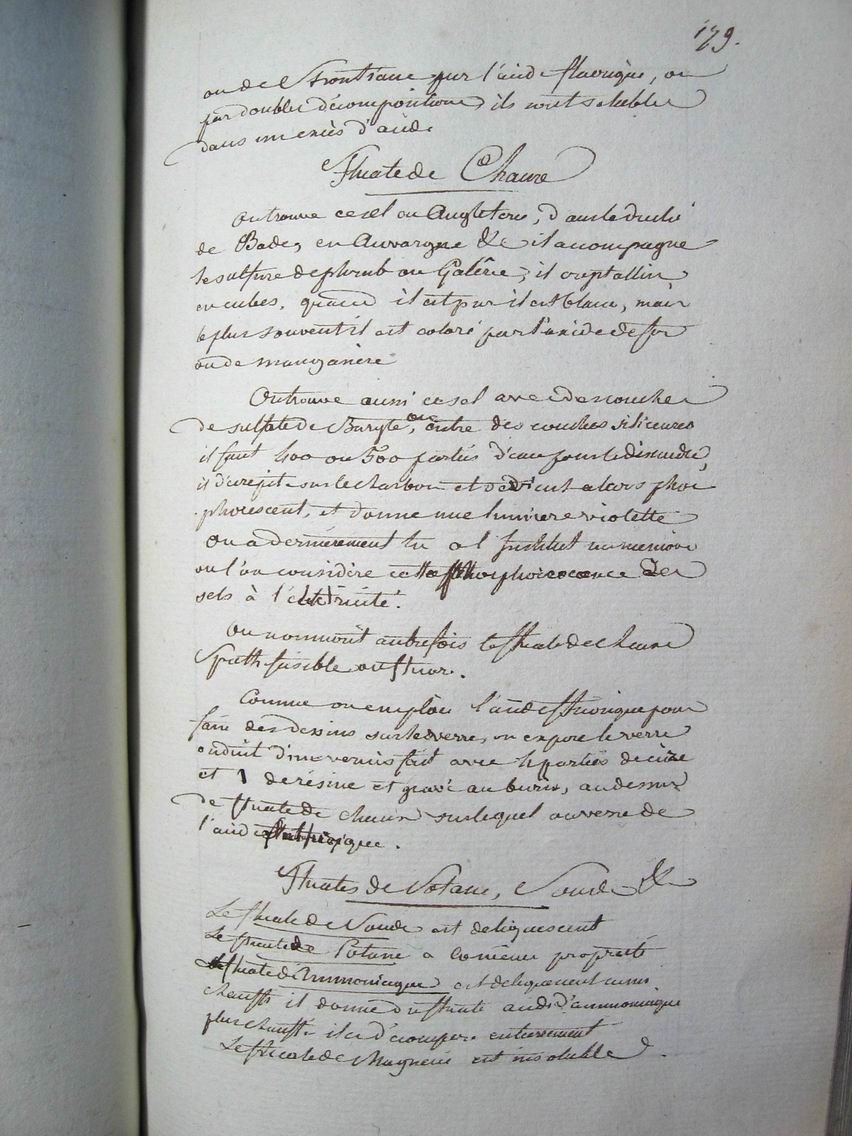 179.
ou de Strontiane par l'acide fluorique, ou
par doubles décompositions, ils sont solubles
dans un excès d'acide
Fluate de Chaux
On trouve ce sel en Angleterre, dans le duché
de Bade, en Auvergne &c il accompagne
le sulfure de plomb ou Galêne; il crystallise
en cubes, quand il est pur il est blanc, mais
le plus souvent il est coloré par l'oxide de fer
ou de manganèse
On trouve aussi ce sel avec des couches
de sulfate de Baryte, ou entre des couches siliceuses
il faut 400 ou 500 parties d'eau pour le dissoudre,
il décrépite sur le charbon et devient alors phos
phorescent, et donne une lumiere violette
On a dernièrement lu a l'Institut un memoire
ou l'on considère cette phosphorescence des
sels à l'électricité.
On nommoit autrefois le fluate de chaux
Spath fusible ou fluor.
Comme on emploie l'acide fluorique pour
faire des dessins sur le verre, on expose le verre
enduit d'un vernis fait avec 4 parties de cire
et 1 de résine et gravé au burin, au dessus
de fluate de chaux sur lequel on verse de
l'acide
Fluates de Potasse, Soude &c
Le fluate de Soude est deliquescent
Le fluate de Potasse a la même propriété
fluate d'Ammoniaque est deliquescent
chauffé il donne du fluate acide d'ammoniaque
plus chauffé il se décompose entierement
Le fluate de Magnesie est insoluble.